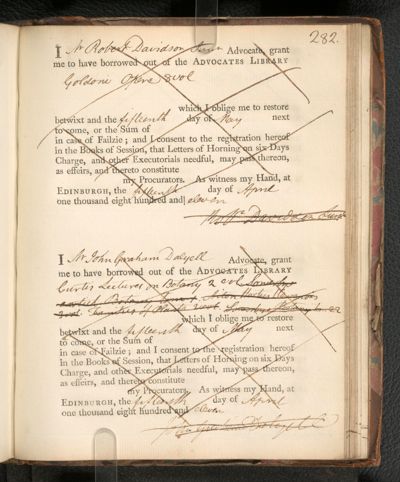 282.
I Mr Robert Davidson Advocate, grant
me to have borrowed out of the ADVOCATES LIBRARY
Goldone Opere 8 vol
which I oblige me to restore
betwixt and the fifteenth day of May next
to come, or the Sum of
in case of Failzie; and I consent to the registration hereof
in the Books of Session, that Letters of Horning on six Days
Charge, and other Executorials needful, may pass thereon,
as effeirs, and thereto constitute
my Procurators. As witness my Hand, at
EDINBURGH, the fifteenth day of April
one thousand eight hundred and eleven
Davidson
I Mr John Graham Dalyell Advocate, grant
me to have borrowed out of the ADVOCATES LIBRARY
Curtis Lectures on Botany 2 vol
which I oblige me to restore
betwixt and the fifteenth day of May next
to come, or the Sum of
in case of Failzie; and I consent to the registration hereof
in the Books of Session, that Letters of Horning on six Days
Charge, and other Executorials needful, may pass thereon,
as effeirs, and thereto constitute
my Procurators. As witness my Hand, at
EDINBURGH, the fifteenth day of April
one thousand eight hundred and eleven